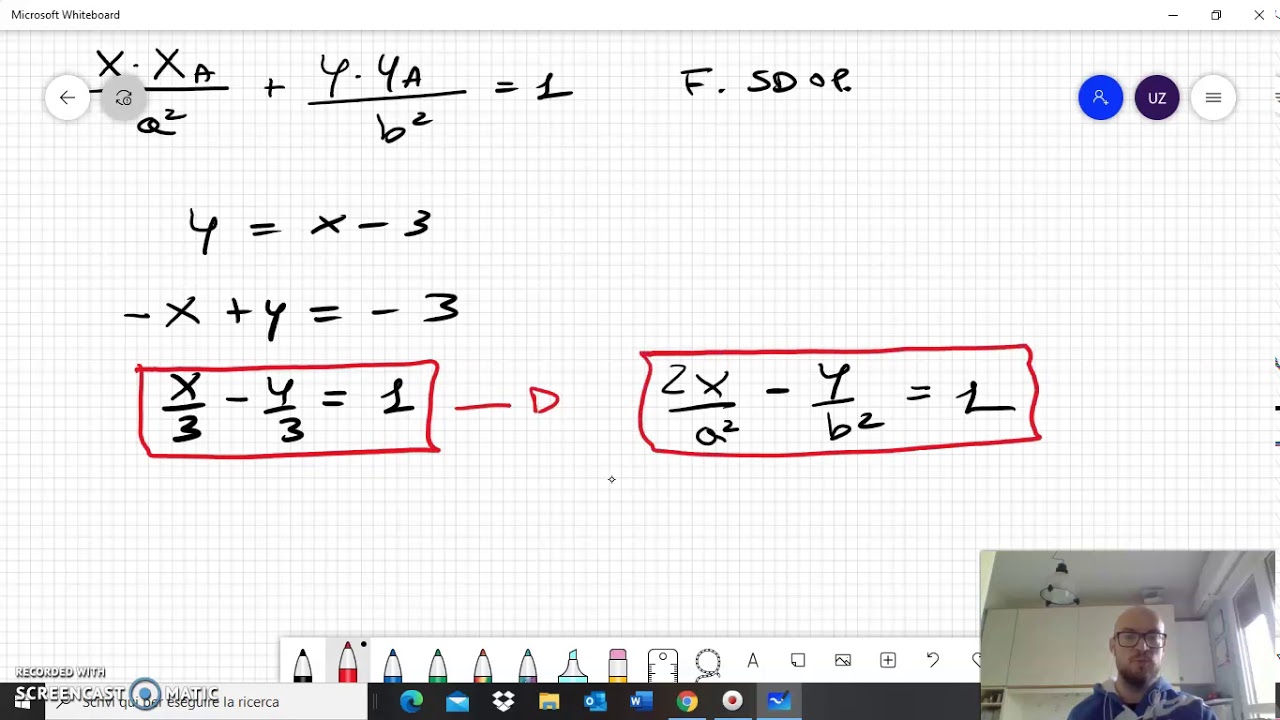 Microsoft Whiteboard
x · x_A / a² + y · y_A / b² = 1
F. SDOP.
UZ
y = x - 3
-x + y = -3
x/3 - y/3 = 1
2x/a² - y/b² = 1
A
RECORDED WITH
SCREENCAST MATIC
Scrivi qui per eseguire la ricerca